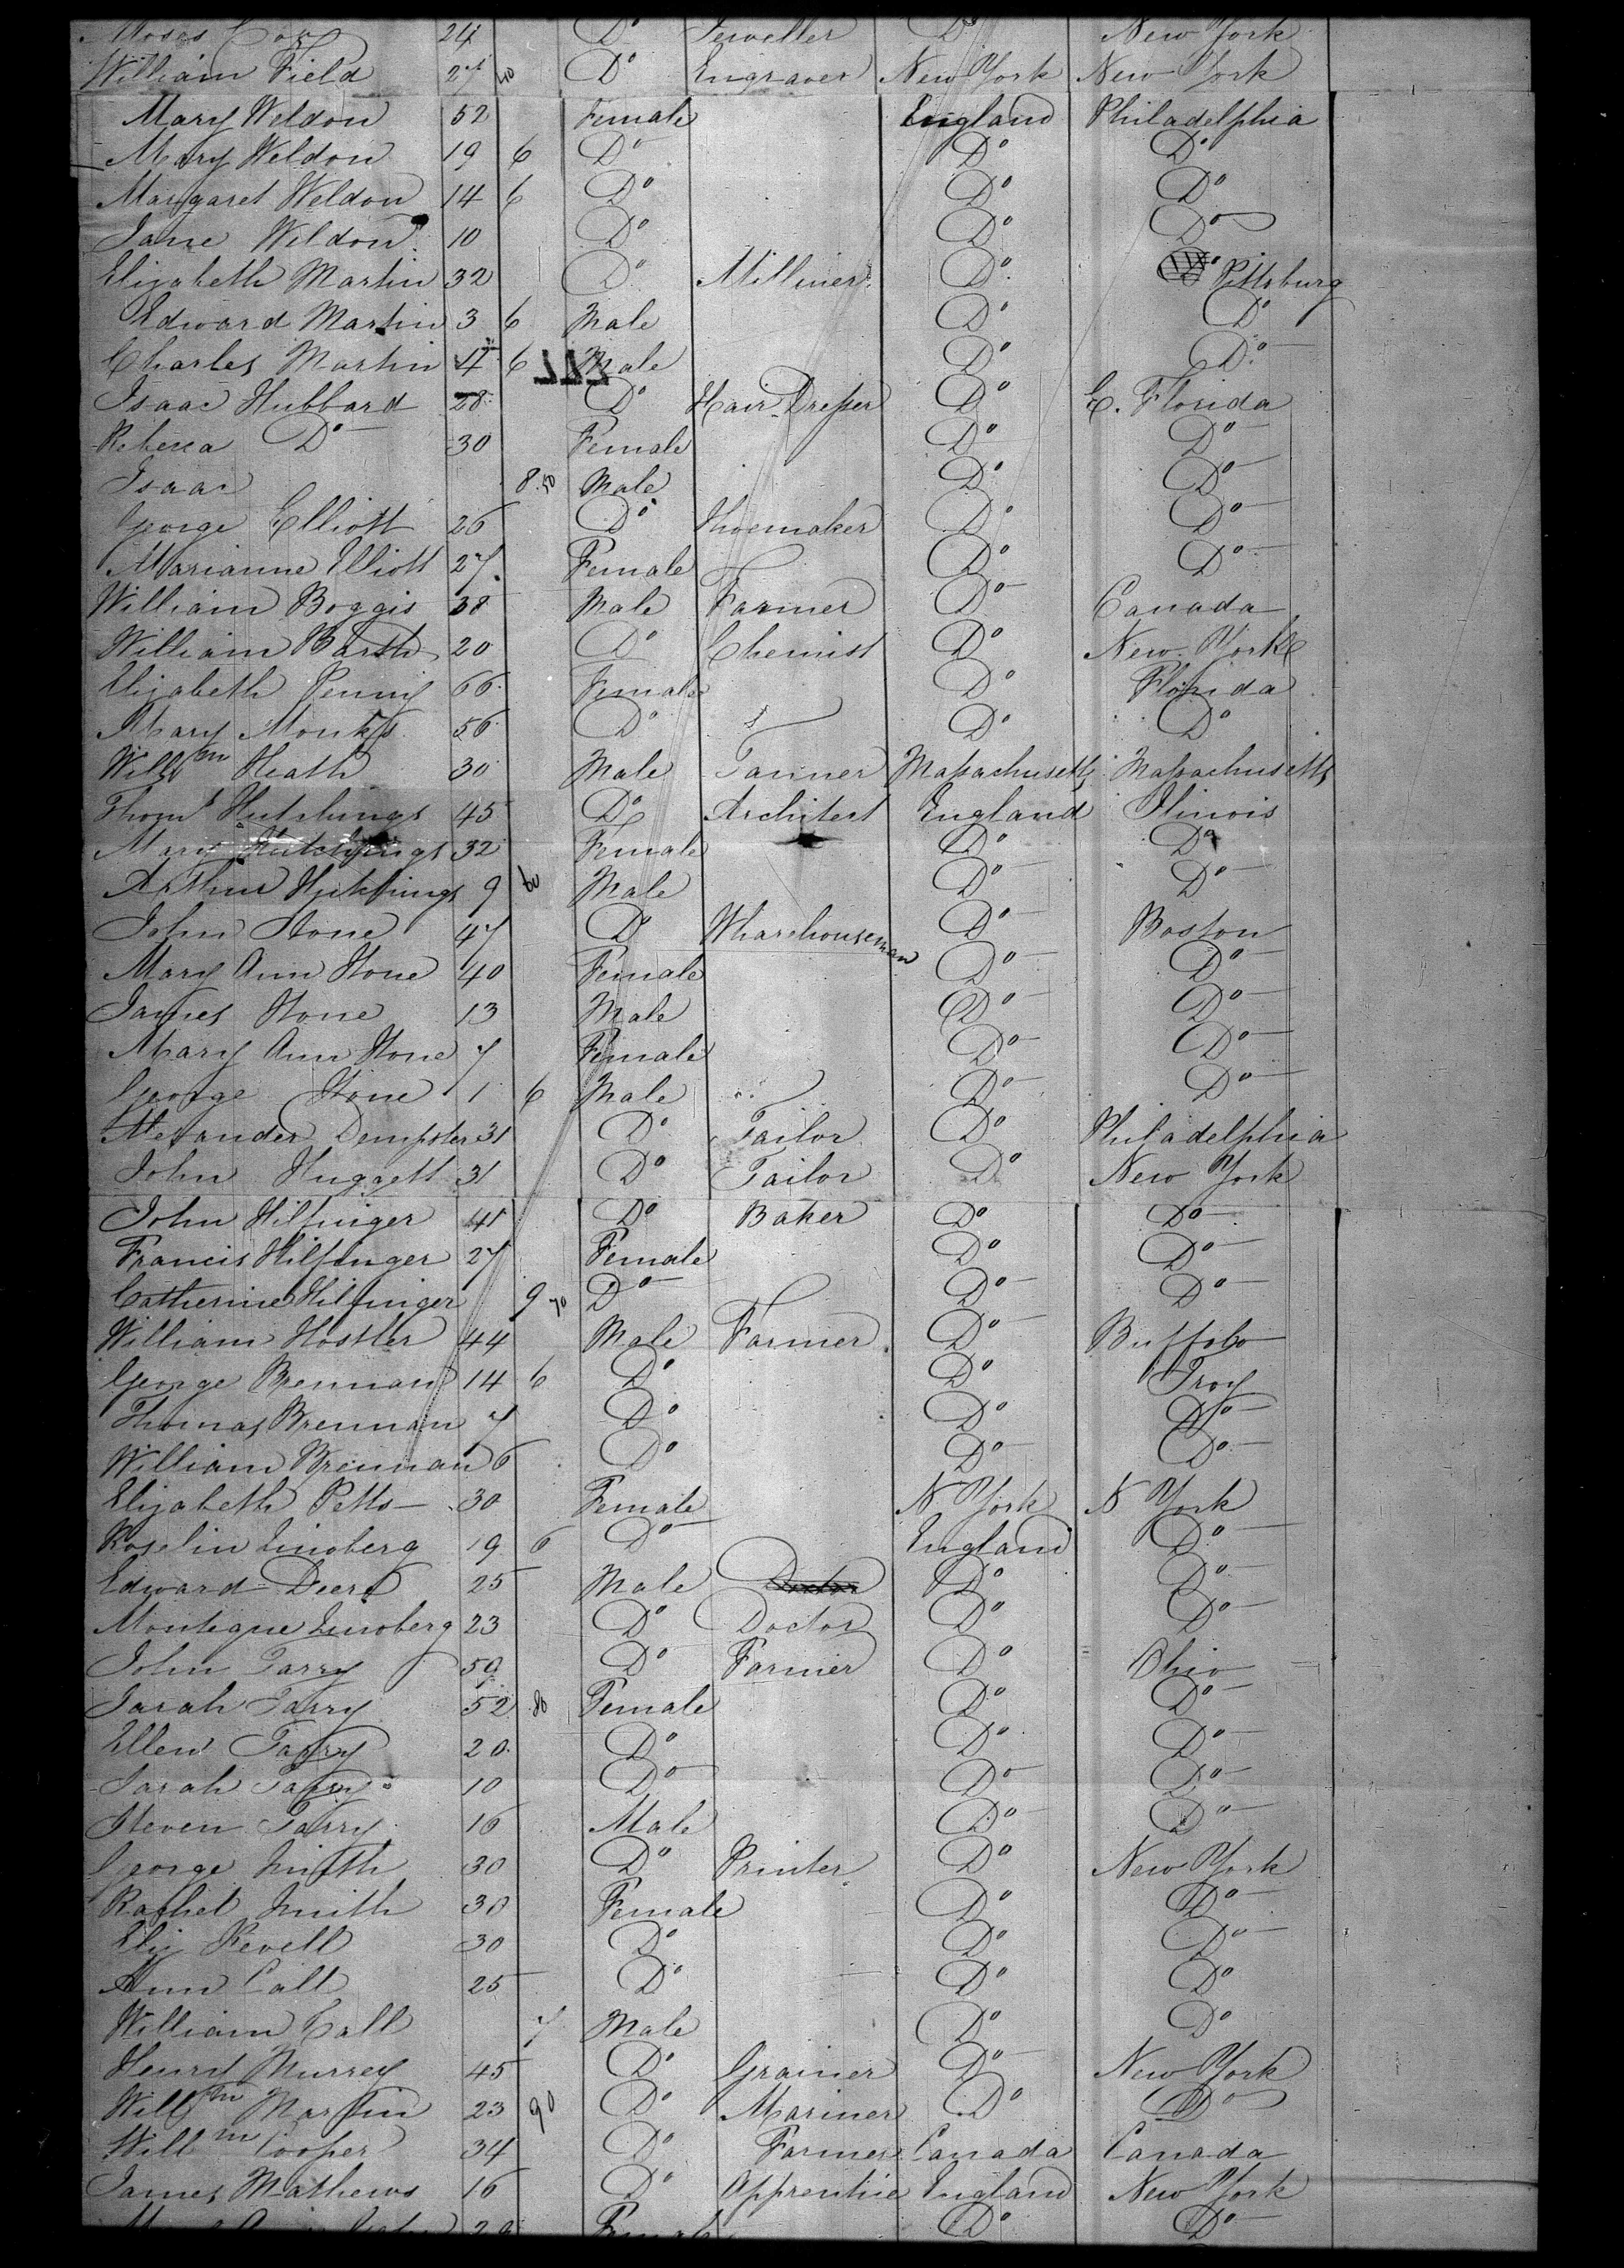 Moses Cox 24 Do Jeweller Do New York
William Field 27 40 Do Engraver New York New York
Mary Weldon 52 Female England Philadelphia
Mary Weldon 19 6 Do Do Do
Margaret Weldon 14 6 Do Do Do
Jane Weldon 10 Do Do Do
Elizabeth Martin 32 Do Milliner Do Pittsburg
Edward Martin 3 6 Male Do Do
Charles Martin 6 Male Do Do
Isaac Hubbard 28 Do Hair Dresser Do E. Florida
Rebecca Do 30 Female Do Do
Isaac 8 50 Male Do Do
George Elliott 26 Do Shoemaker Do Do
Marianne Elliott 27 Female Do Do
William Boggis 38 Male Farmer Do Canada
William 20 Do Chemist Do New York
Elizabeth Penny 66 Female Do Florida
Mary Monks 56 Do Do Do
Willm Heath 30 Male Tanner Massachusetts Massachusetts
Thoms Hutchings 45 Do Architect England Ilinois
Mary Hutchings 32 Female Do Do
Arthur Hutchings 9 60 Male Do Do
John Stone 47 D Wharehouseman Do Boston
Mary Ann Stone 40 Female Do Do
James Stone 13 Male Do Do
Mary Ann Stone 7 Female Do Do
George Stone 1 6 Male Do Do
Alexander Dempster 31 Do Tailor Do Philadelphia
John Huggett 31 Do Tailor Do New York
John Hilfinger 41 Do Baker Do Do
Francis Hilfinger 27 Female Do Do
Catherine Hilfinger 9 70 Do Do Do
William Hostler 44 Male Farmer Do Buffolo
George Brennan 14 6 Do Do Troy
Thomas Brennan 7 Do Do Do
William Brennan 6 Do Do Do
Elizabeth Petts 30 Female N York N York
Roselin 19 6 Do England Do
Edward Deere 25 Male Do Do
Monteque 23 Do Doctor Do Do
John Tarry 59 Do Farmer Do Ohio
Sarah Tarry 52 80 Female Do Do
Ellen Tarry 20 Do Do Do
Sarah Tarry 10 Do Do Do
Steven Tarry 16 Male Do Do
George Smith 30 Do Printer Do New York
Rachel Smith 30 Female Do Do
Eliz Revell 30 Do Do Do
Ann Call 25 Do Do Do
William Call 7 Male Do Do
Henry Murrey 45 Do Grainer Do New York
Willm Martin 23 90 Do Mariner Do Do
Willm Cooper 34 Do Farmer Canada Canada
James Mathews 16 Do Apprentice England New York
Female Do Do